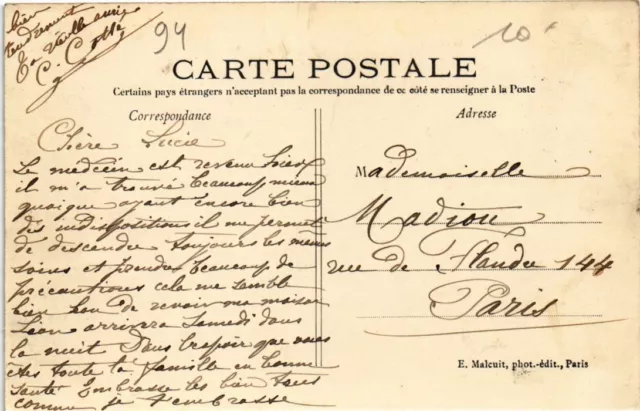 94
10
CARTE POSTALE
Certains pays étrangers n'acceptant pas la correspondance de ce côté se renseigner à la Poste
Correspondance
Adresse
Chère Lucie
Le medecin est revenu
il m'a trouvé beaucoup mieux
quoique ayant encore bien
des indispositions il me permet
de descendre toujours les mêmes
soins et prendre beaucoup de
précautions cela me semble
bien bon de revoir ma maison
Léon arrivera Samedi dans
la nuit J'espère que vous
êtes toute la famille en bonne
santé Embrasse les bien tous
comme je t'embrasse
bien
tendrement
Ta vieille amie
C.
Mademoiselle
Madiou
rue de Flandre 144
Paris
E. Malcuit, phot.-édit., Paris